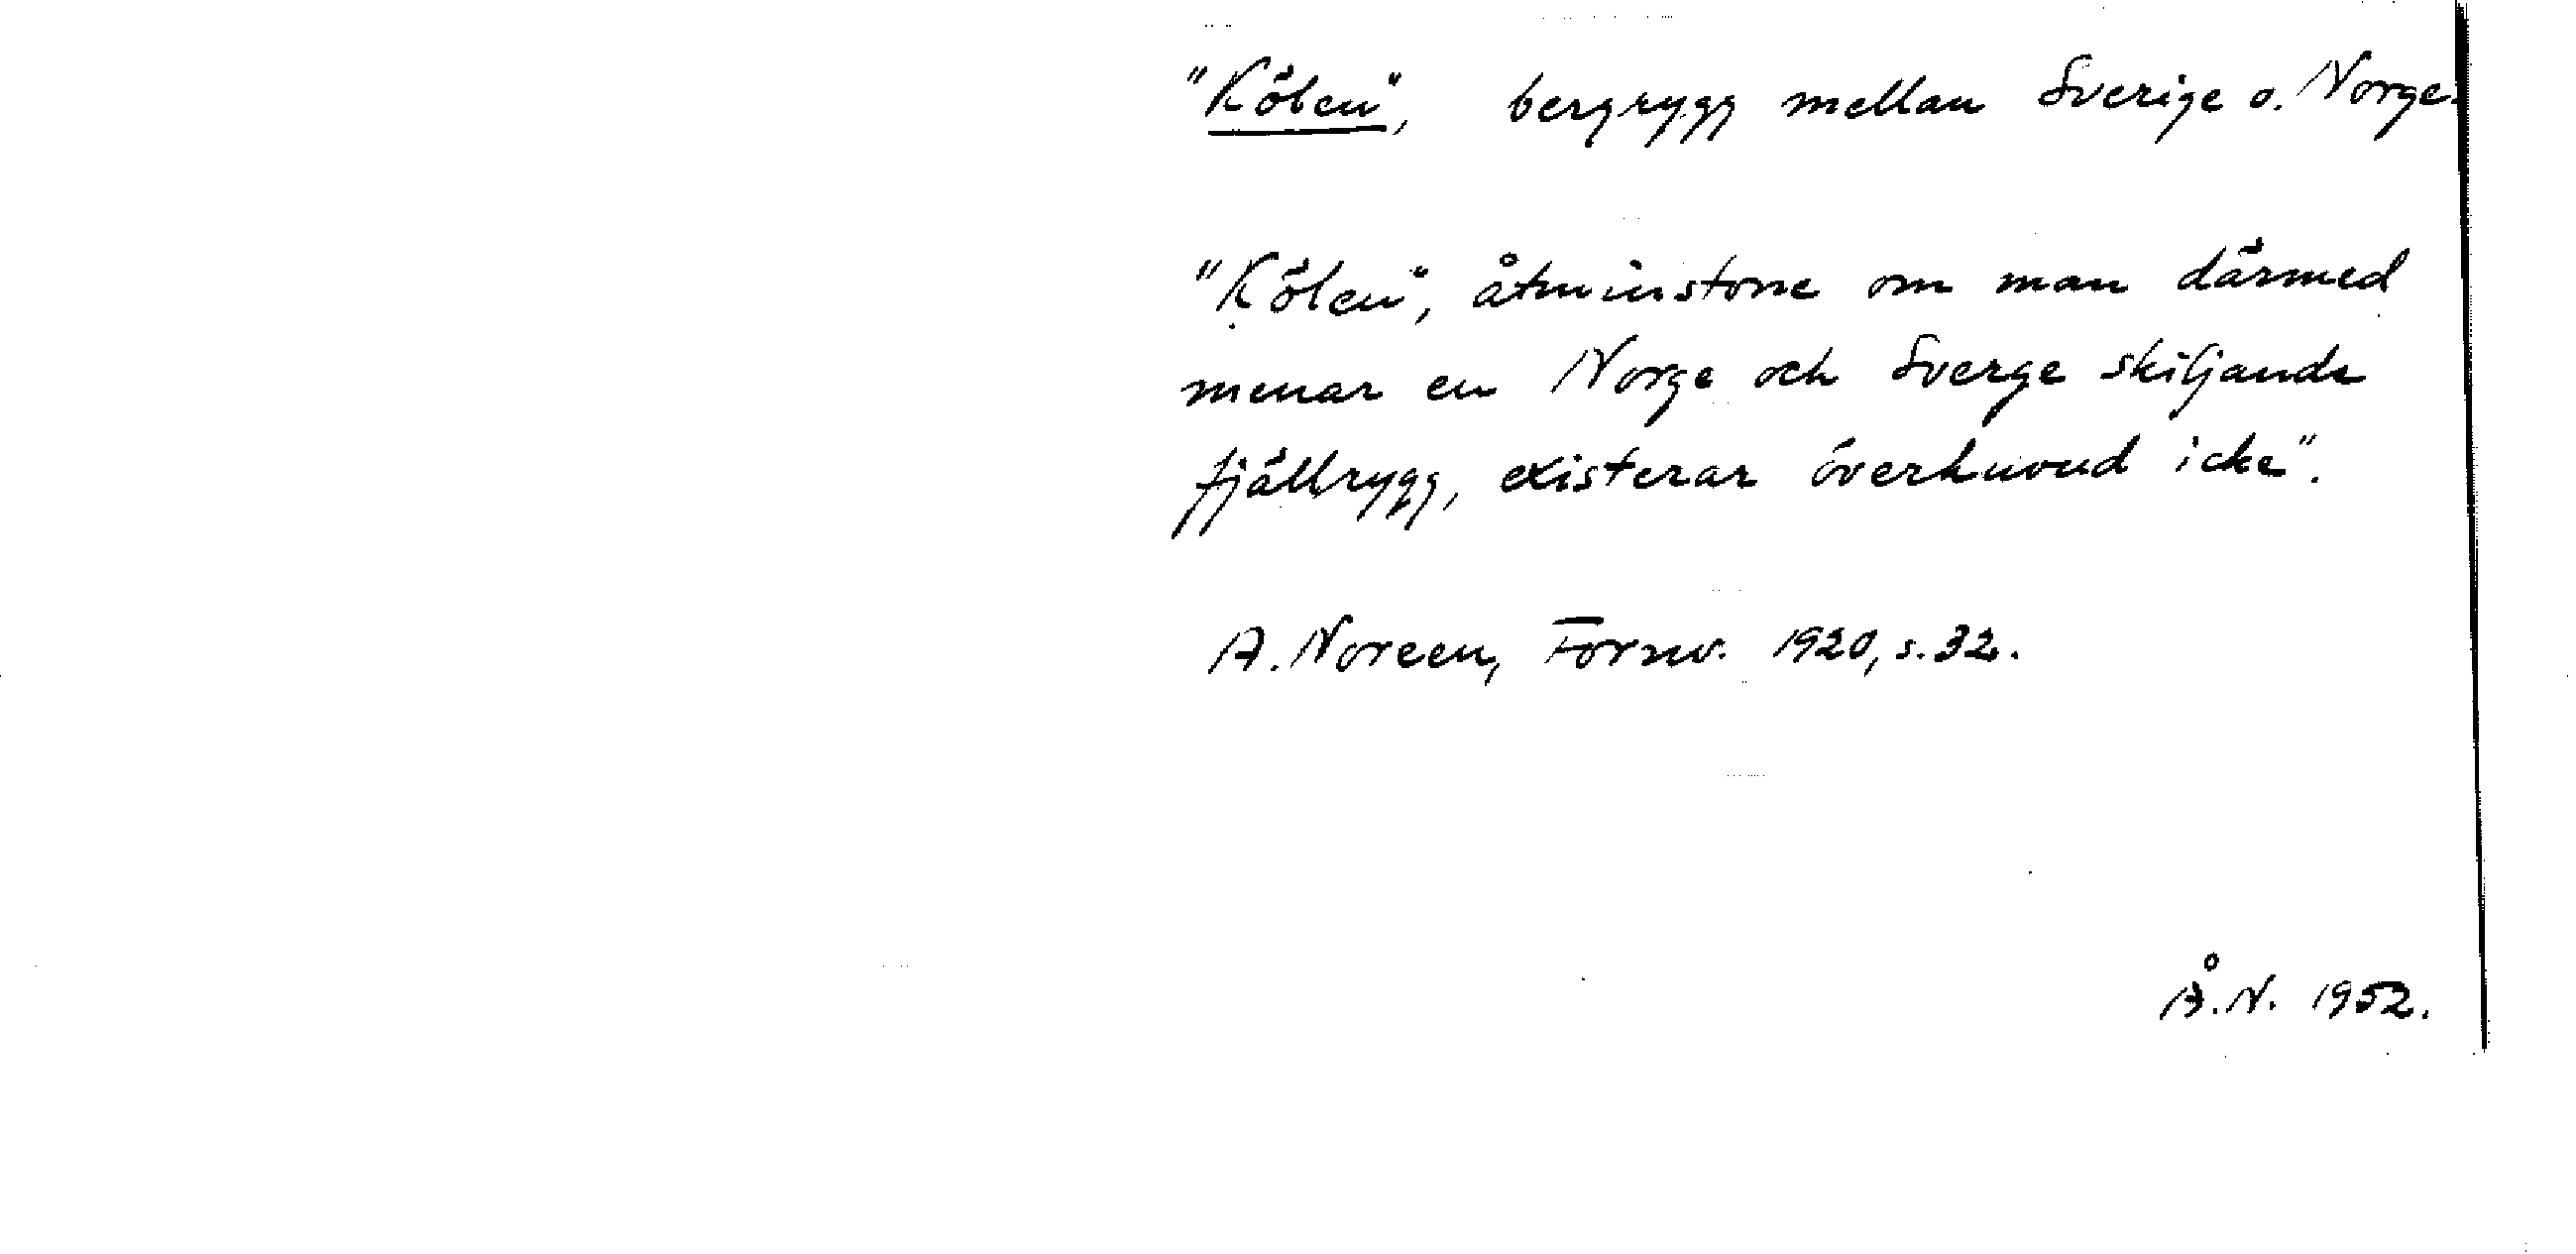 "Kölen", bergrygg mellan Sverige o. Norge.
"Kölen", åtminstone om man därmed
menar en Norge och Sverge skiljande
fjällrygg, existerar överhuvud icke".
A. Noreen, Fornv. 1920, s. 32.
Å. N. 1952.